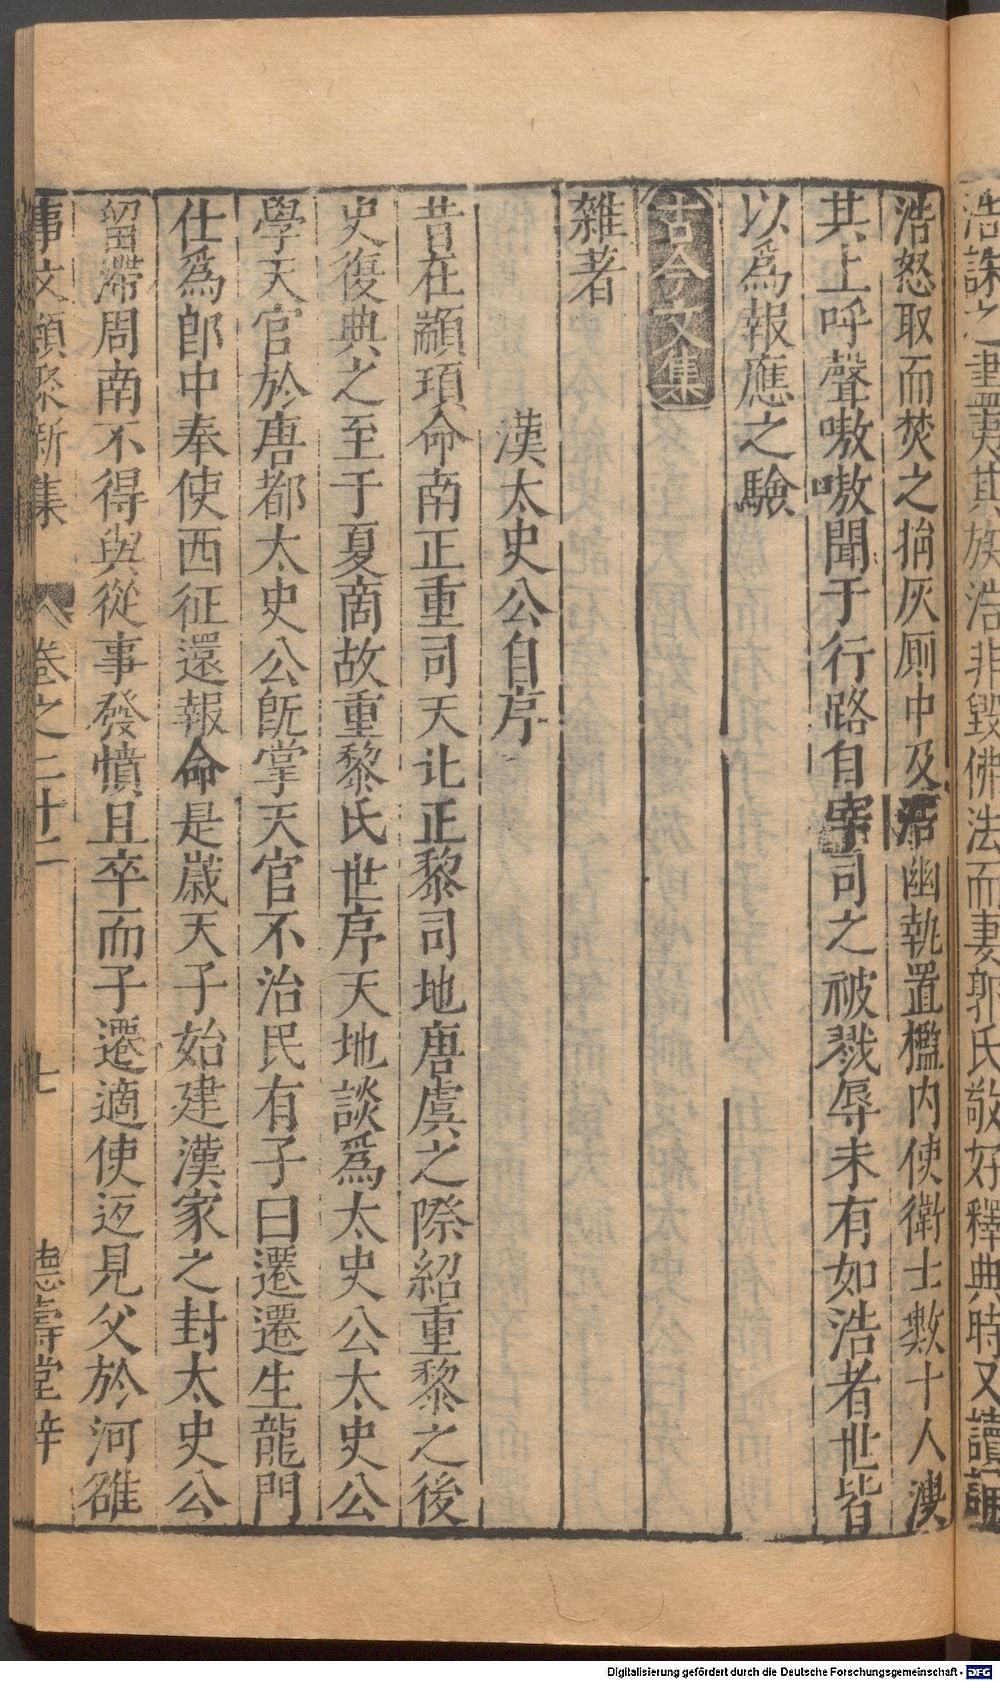 浩誅之盡夷其族浩非毀佛法而妻郭氏敬好釋典時又讀誦
浩怒取而焚之捐灰厠中及浩幽執置檻內使衛士數十人溲
其上呼聲嗷嗷聞于行路自宰司之被戮辱未有如浩者世皆
以爲報應之驗
古今文集
雜著
漢太史公自序
昔在顓頊命南正重司天北正黎司地唐虞之際紹重黎之後
史復典之至于夏商故重黎氏世序天地談爲太史公太史公
學天官於唐都太史公旣掌天官不治民有子曰遷遷生龍門
仕爲郎中奉使西征還報命是歲天子始建漢家之封太史公
留滯周南不得與從事發憤且卒而子遷適使返見父於河雒
事文類聚新集 卷之二十二 七 德壽堂梓
Digitalisierung gefördert durch die Deutsche Forschungsgemeinschaft - DFG